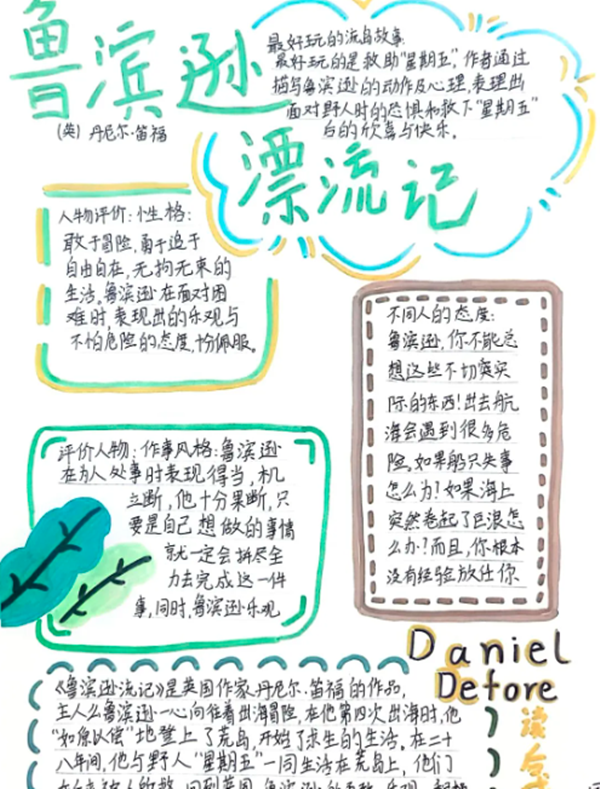 鲁滨逊
漂流记
(英) 丹尼尔·笛福
最好玩的流岛故事:
最好玩的是救助“星期五”,作者通过
描写鲁滨逊的动作及心理,表理出
面对野人时的恐惧和救下“星期五”
后的欣喜与快乐。
人物评价:性格:
敢于冒险,勇于追于
自由自在,无拘无束的
生活。鲁滨逊在面对困
难时,表现出的乐观与
不怕危险的态度,佩服。
不同人的态度:
鲁滨逊,你不能总
想这些不切实
际的东西!出去航
海会遇到很多危
险,如果船只失事
怎么为?如果海上
突然卷起了巨浪怎
么办?而且,你根本
没有经验放任你
评价人物:作事风格:鲁滨逊
在为人处事时表现得当,机
立断,他十分果断,只
要是自己想做的事情
就一定会拼尽全
力去完成这一件
事,同时,鲁滨逊乐观
Daniel
Defore
《鲁滨逊流记》是英国作家丹尼尔·笛福的作品,
主人么鲁滨逊一心向往着出海冒险,在他第四次出海时,他
“如原以偿”地登上了荒岛,开始了求生的生活。在二十
八年间,他与野人“星期五”一同生活在荒岛上,他们
读